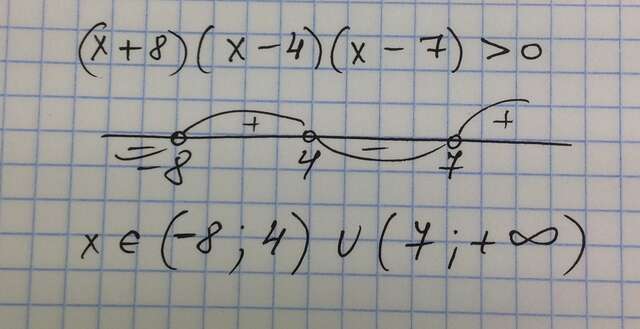 (x+8)(x-4)(x-7)>0
+ - +
-
-8 4 7
x ∈ (-8; 4) ∪ (7; +∞)